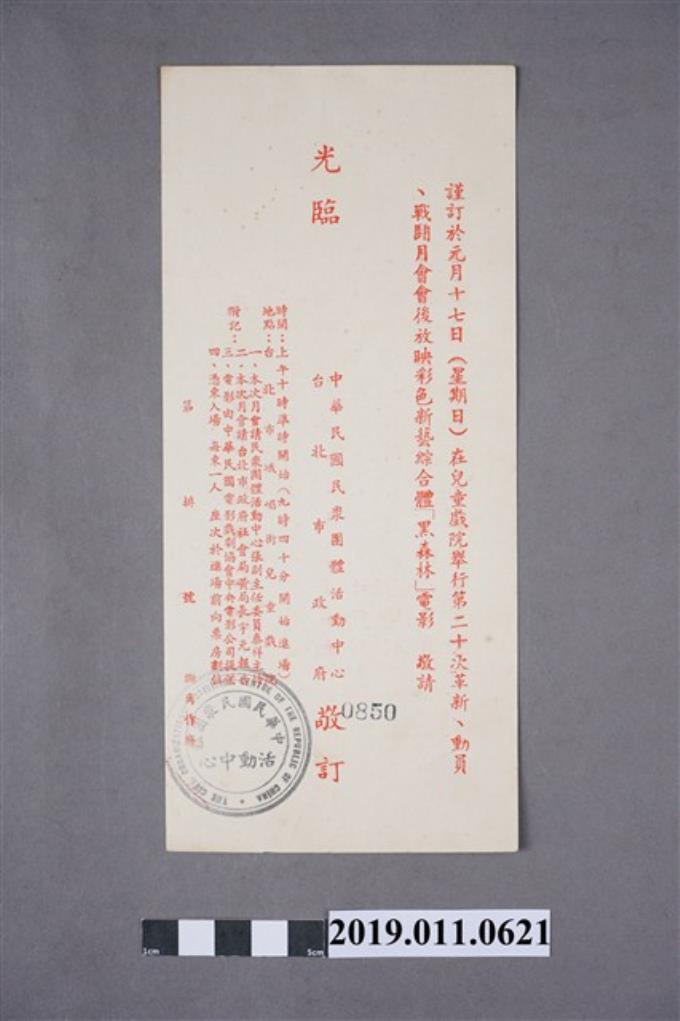 謹訂於元月十七日(星期日)在兒童戲院舉行第二十次革新、動員
、戰鬪月會會後放映彩色新藝綜合體「黑森林」電影 敬請
光臨
中華民國民衆團體活動中心
台北市政府
敬訂
0850
時間:上午十時準時開始(九時四十分開始進場)
地點:台北市城 街兒童戲
附記:一、本次月會請民衆團體活動中心張副主任委員泰祥主
二、本次月會請台北市政府社會局黃局長宇元報
三、電影由中華民國電影戲劇協會中央電影公司提
四、憑柬入場 每柬一人 座次於進場前向票房劃
第 排 號
作
中華民國民衆團
活動中心
THE CIVIL ORGANIZATIONS CENTRE OF THE REPUBLIC OF CHINA
1cm 5cm
2019.011.0621